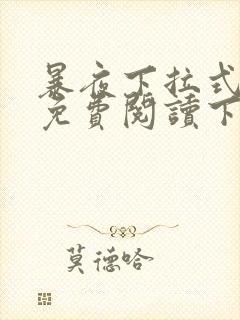 暴夜下拉式
免費閱讀下
莫德哈